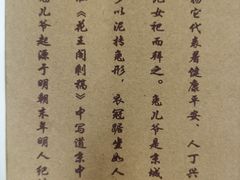 兔儿爷起源于明朝末年明人纪坤
《花王阁剩稿》中写道京中
多以泥抟兔形,衣冠踞坐如人
儿女祀而拜之。兔儿爷是京城
物它代表着健康平安、人丁兴